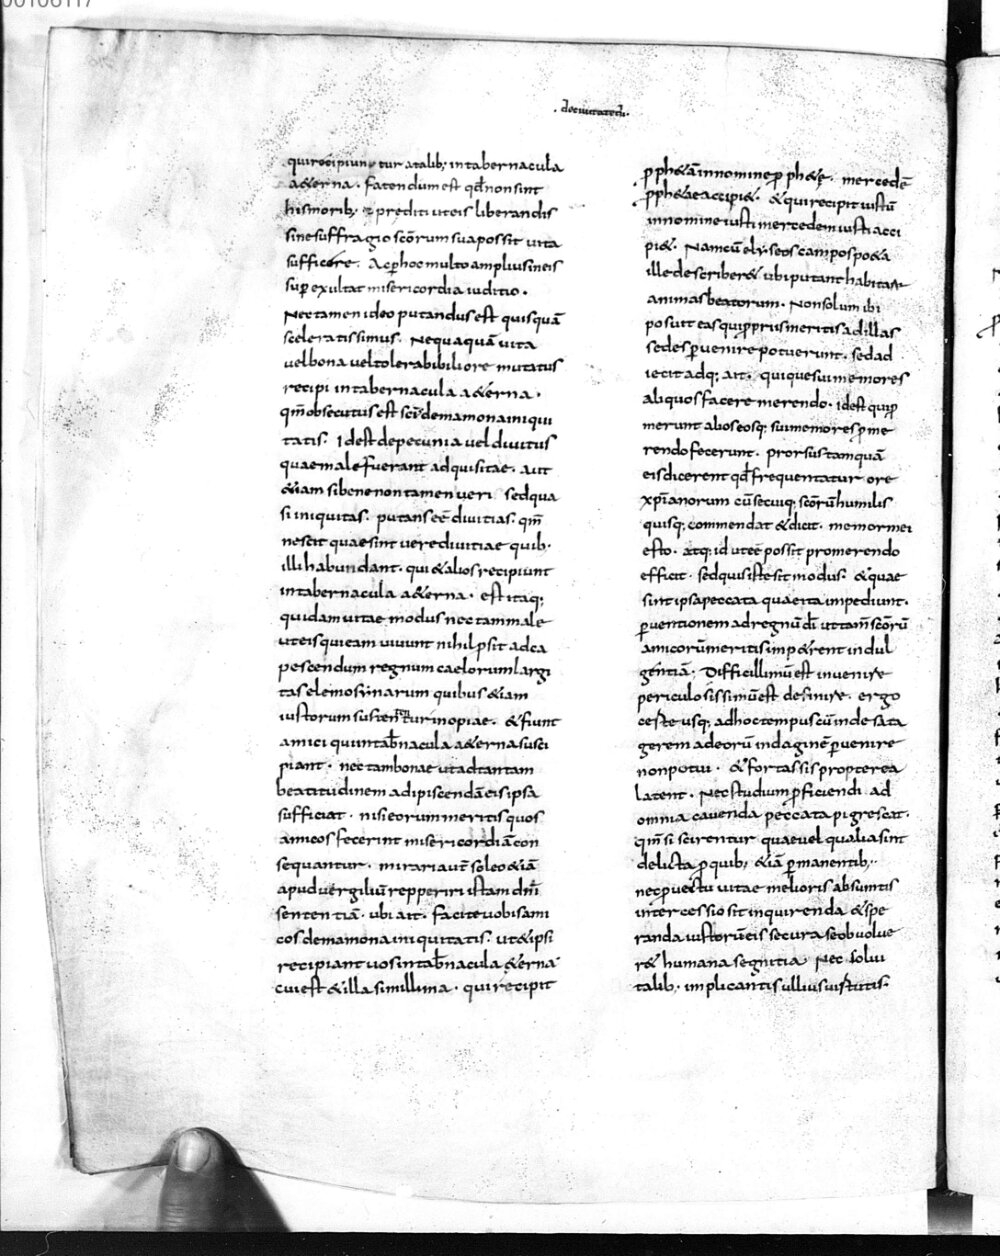 00106117
. de ciuitate dī .
qui recipiuntur a talib; in tabernacula
aet&erna . fatendum est qđ non sint
his morib; praediti ut eis liberandis
sine suffragio scōrum sua possit uita
sufficere . Ac p hoc multo amplius in eis
sup exultat misericordia iuditio .
Nec tamen ideo putandus est quisquā
sceleratissimus . Nequaquā uita
uel bona uel tolerabiliore mutatus
recipi in tabernacula a&erna .
qm̄ obsecutus est scīs de mamona iniqui
tatis . Id est de pecunia uel diuitiis
quae male fuerant adquisitae . aut
&iam si bene non tamen ueri sed qua
si iniquitas . putans eē diuitias . qm̄
nescit quae sint uere diuitiae quib;
illi habundant . qui & alios recipiunt
in tabernacula a&erna . est itaq;
quidam uitae modus nec tam male
ut eis qui eam uiuunt nihil p̄sit ad ca
pescendum regnum caelorum largi
tas elemosynarum quibus &iam
iustorum sustentatur inopiae . & fiunt
amici qui in tab̄nacula a&erna susci
piant . nec tam bonae ut ad tantam
beatitudinem adipiscendā eis ipsa
sufficiat . nisi eorum meritis quos
amicos fecerint misericordiā con
sequantur . mirari aut̄ soleo &iā
apud uergiliū repperiri istam dn̄i
sententiā . ubi ait . facite uobis ami
cos de mamona iniquitatis . ut & ipsi
recipiant uos in tab̄nacula a&erna
cui est & illa simillima . qui recipit
pph&ā in nomine pph&e . mercedē
pph&ae accipi& . & qui recipit iustū
in nomine iusti mercedem iusti acci
pi& . Nam cū elyseos campos po&a
ille describer& ubi putant habitare
animas beatorum . Non solum ibi
posuit eas qui pprius meritis ad illas
sedes puenire potuerunt . sed ad
iecit adq; ait . quique sui memores
aliquos facere merendo . id est qui p
merunt alios eosq; sui memores pme
rendo fecerunt . prorsus tamquā
eis dicerent qđ frequentatur ore
xpīanorum cū se cuiq; scōrū humilis
quisq; commendat & dicit . memor mei
esto . atq; id ut eē possit promerendo
efficit . sed quis iste sit modus . & quae
sint ipsa peccata quae ita impediunt
puentionem ad regnū dī ut tam̄ scōrū
amicorū meritis imp&rent indul
gentiā . Difficillimū est inuenire
periculosissimū est definire . ergo
certe usq; ad hoc tempus cū inde sata
gerem ad eorū indaginē puenire
non potui . & fortassis propterea
latent . Nec studium pficiendi ad
omnia cauenda peccata pigrescat .
qm̄ si scirentur quae uel qualia sint
delicta p quib; &iā pmanentib;
nec puectu uitae melioris absumtis
intercessio sit inquirenda & spe
randa iustorū eis secura se obuolue
r& humana segnitia Nec solui
talib; implicantis ullius uirtutis .